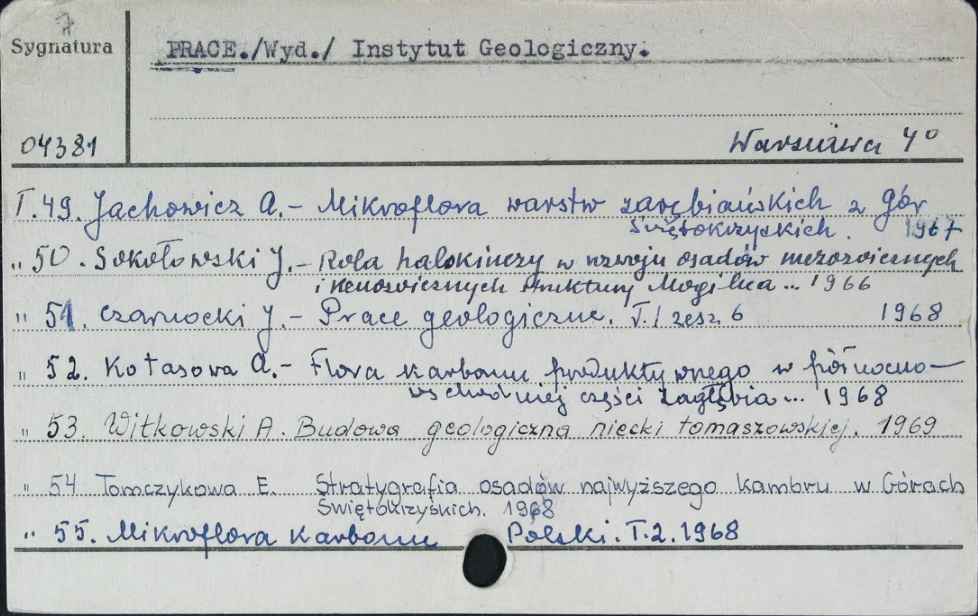 7
Sygnatura
PRACE./Wyd./ Instytut Geologiczny.
04381
Warszawa 4°
T.49. Jachowicz A. - Mikroflora warstw zarębiańskich z Gór
Świętokrzyskich. 1967
" 50. Sokołowski J. - Rola halokinezy w rozwoju osadów mezozoicznych
i kenozoicznych struktury Mogilna... 1966
" 51. Czarnocki J. - Prace geologiczne. T.1 zesz. 6 1968
" 52. Kotasowa A. - Flora karbonu produktywnego w północno-
wschodniej części zagłębia... 1968
" 53. Witkowski A. Budowa geologiczna niecki tomaszowskiej. 1969
" 54 Tomczykowa E. Stratygrafia osadów najwyższego kambru w Górach
Świętokrzyskich. 1968
" 55. Mikroflora karbonu Polski. T.2. 1968